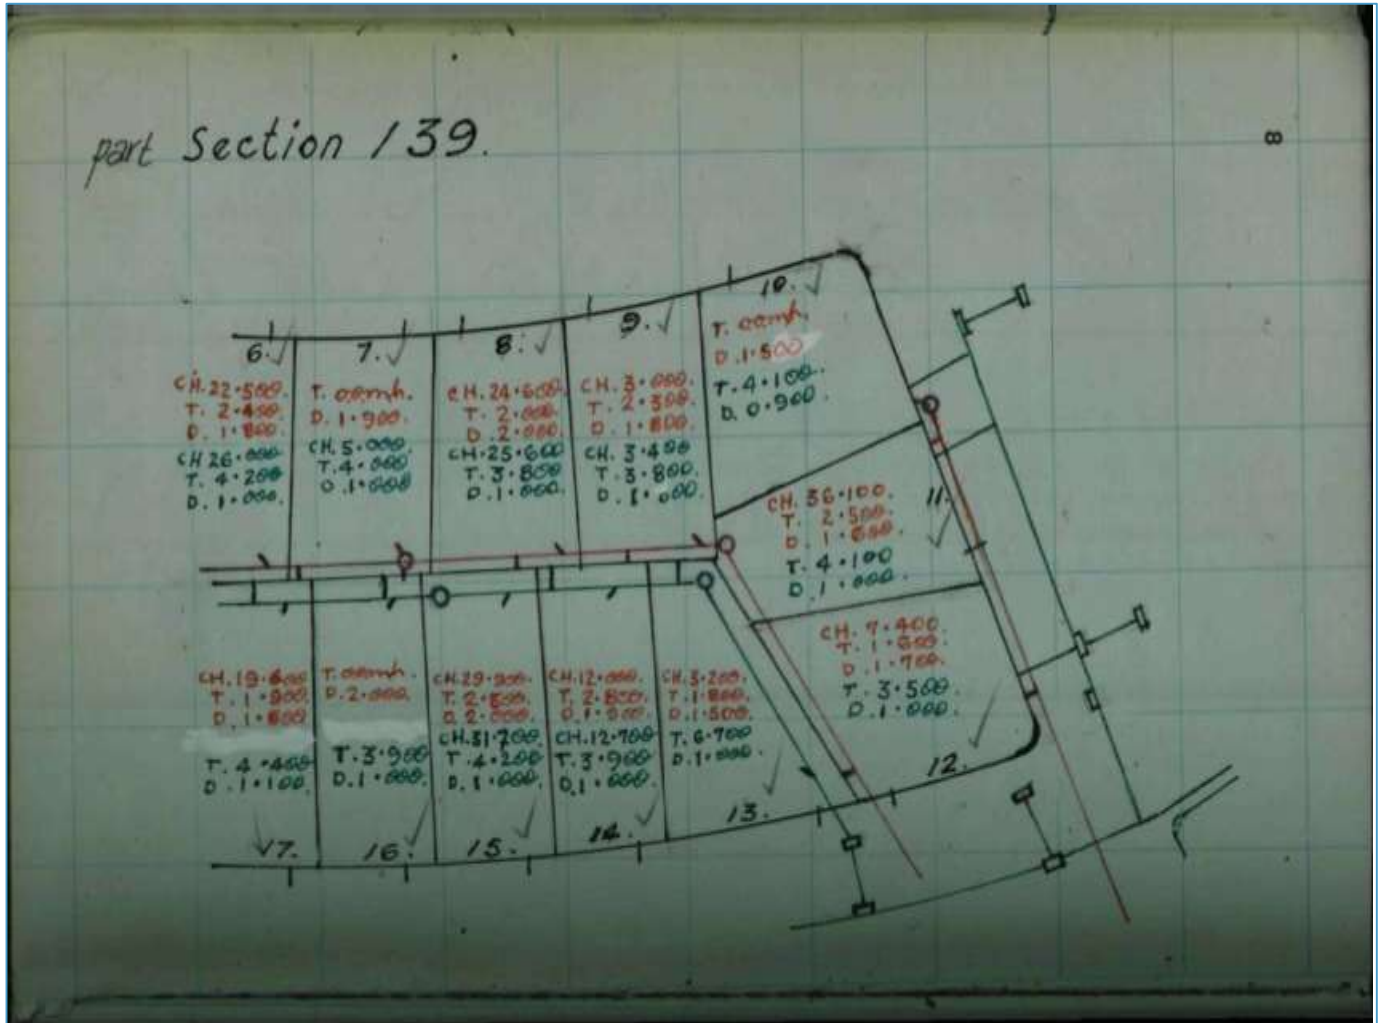 part Section 139.
8
6.
CH.22.500.
T. 2.400.
D. 1.800.
CH 26.000
T. 4.200
D. 1.000.
7.
T. oomh.
D. 1.900.
CH. 5.000.
T. 4.000
D. 1.000
8.
CH. 24.600
T. 2.000.
D. 2.000.
CH.25.600
T. 3.800
D. 1.000.
9.
CH. 3.000.
T. 2.300.
D. 1.800.
CH. 3.400
T. 3.800.
D. 1.000.
10.
T. oomh.
D. 1.500
T. 4.100.
D. 0.900.
11.
CH. 36.100.
T. 2.500.
T. 4.100
D. 1.000.
CH. 7.400
T. 1.600.
D. 1.700.
T. 3.500.
D. 1.000.
12.
CH. 3.200.
T. 1.800.
D. 1.500.
T. 6.700
D. 1.000.
13.
CH.12.000.
T. 2.800.
CH.12.700
T. 3.900
D. 1.000.
14.
CH.29.900
T. 2.800.
D. 2.000.
CH.31.200.
T. 4.200
D. 1.000.
15.
T. oomh.
D. 2.000.
T. 3.900
D. 1.000.
16.
CH. 19.600
T. 1.900
D. 1.800
T. 4.400
D. 1.100.
17.